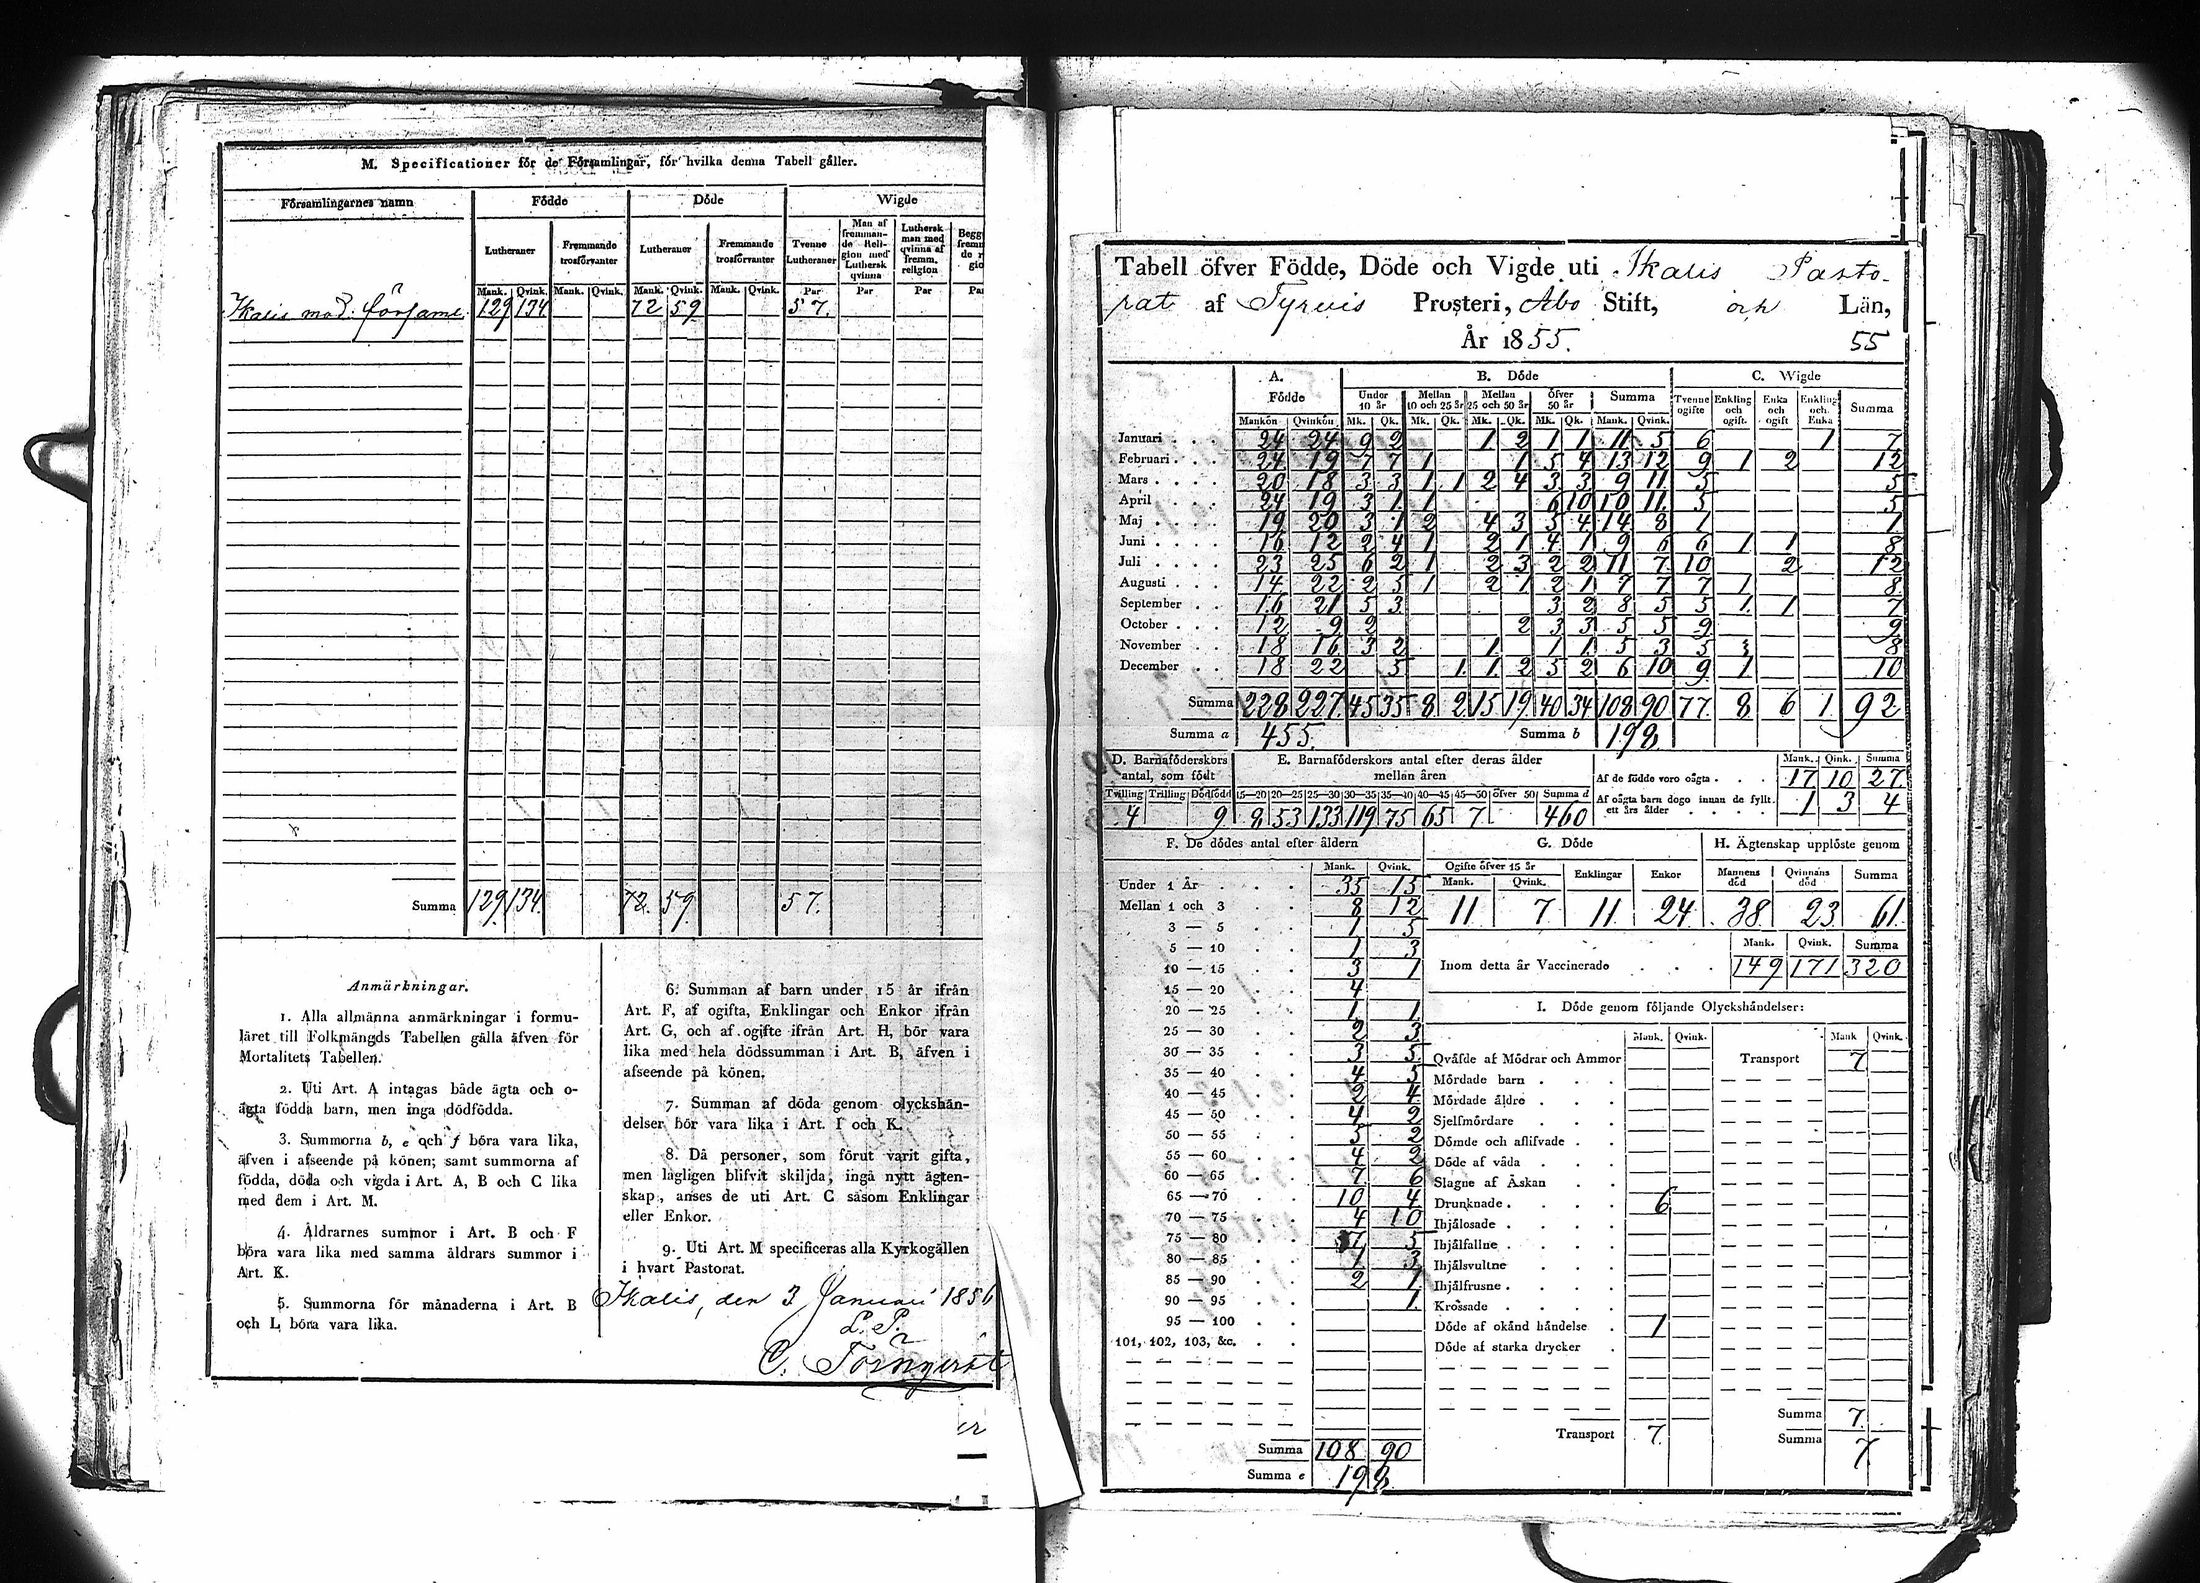 M. Specificationer för de Församlingar, för hvilka denna Tabell gäller.
Församlingarnes namn Födde Döde Wigde
Lutheraner Fremmande trosförvanter Lutheraner Fremmande trosförvanter Tvenne Lutheraner Man af fremmande Religion med Luthersk qvinna Luthersk man med qvinna af fremm. religion
Mank. Qvink. Mank. Qvink. Mank. Qvink. Mank. Qvink. Par Par Par
Ikalis mod. församl. 129 134 72 59 57.
Summa 129 134. 72. 59. 57.
Anmärkningar.
1. Alla allmänna anmärkningar i formu-
läret till Folkmängds Tabellen gälla äfven för
Mortalitets Tabellen.
2. Uti Art. A intagas både ägta och o-
ägta födda barn, men inga dödfödda.
3. Summorna b, e och f böra vara lika,
äfven i afseende på könen; samt summorna af
födda, döda och vigda i Art. A, B och C lika
med dem i Art. M.
4. Åldrarnes summor i Art. B och F
böra vara lika med samma åldrars summor i
Art. K.
5. Summorna för månaderna i Art. B
och L böra vara lika.
6. Summan af barn under 15 år ifrån
Art. F, af ogifta, Enklingar och Enkor ifrån
Art. G, och af ogifte ifrån Art. H, bör vara
lika med hela dödssumman i Art. B, äfven i
afseende på könen.
7. Summan af döda genom olyckshän-
delser bör vara lika i Art. I och K.
8. Då personer, som förut varit gifta,
men lagligen blifvit skiljda, ingå nytt ägten-
skap, anses de uti Art. C såsom Enklingar
eller Enkor.
9. Uti Art. M specificeras alla Kyrkogällen
i hvart Pastorat.
Ikalis, den 3 Januari 1856
C. Törnqvist
Tabell öfver Födde, Döde och Vigde uti Ikalis Pasto-
rat af Tyrvis Prosteri, Åbo Stift, och Län,
År 1855. 55
A. Födde B. Döde C. Wigde
Under 10 år Mellan 10 och 25 år Mellan 25 och 50 år Öfver 50 år Summa Tvenne ogifte Enkling och ogift. Enka och ogift Enkling och Enka Summa
Mankön Qvinkön Mk. Qk. Mk. Qk. Mk. Qk. Mk. Qk. Mank. Qvink.
Januari 24 24 9 2 1 2 1 1 11 5 6 1 7
Februari 24 19 7 7 1 1 5 4 13 12 9 1 2 12
Mars 20 18 3 3 1 1 2 4 3 3 9 11 5 5
April 24 19 3 1 1 6 10 10 11 5 5
Maj 19 20 3 1 2 4 3 5 4 14 8 1 1
Juni 16 12 2 4 1 2 1 4 1 9 6 6 1 1 8
Juli 23 25 6 2 1 2 3 2 2 11 7 10 2 12
Augusti 14 22 2 5 1 2 1 2 1 7 7 7 1 8
September 16 21 5 3 3 2 8 5 5 1 1 7
October 12 9 2 2 3 3 5 5 9 9
November 18 16 3 2 1 1 1 5 3 5 3 8
December 18 22 5 1 1 2 5 2 6 10 9 1 10
Summa 228 227. 45 35 8 2 15 19 40 34 108 90 77. 8 6 1 92
Summa a 455. Summa b 198
D. Barnaföderskors antal, som födt E. Barnaföderskors antal efter deras ålder mellan åren
Tvilling Trilling Dödfödd 15—20 20—25 25—30 30—35 35—40 40—45 45—50 öfver 50 Summa d
4 9 8 53 133 119 75 65 7 460
Mank. Qink. Summa
Af de födde voro oägta 17 10 27.
Af oägta barn dogo innan de fyllt. ett års ålder 1 3 4
F. De dödes antal efter åldern
Mank. Qvink.
Under 1 År 35 15
Mellan 1 och 3 8 12
3 — 5 1 5
5 — 10 1 3
10 — 15 3 1
15 — 20 4
20 — 25 1 1
25 — 30 2 3
30 — 35 3 5
35 — 40 4 5
40 — 45 2 4
45 — 50 4 2
50 — 55 5 2
55 — 60 4 2
60 — 65 7 6
65 — 70 10 4
70 — 75 4 10
75 — 80 7 5
80 — 85 1 3
85 — 90 2 1
90 — 95 1.
95 — 100
101, 102, 103, &c.
Summa 108 90
Summa e 198
G. Döde
Ogifte öfver 15 år Enklingar Enkor
Mank. Qvink.
11 7 11. 24.
H. Ägtenskap upplöste genom
Mannens död Qvinnans död Summa
38 23 61.
Mank. Qvink. Summa
Inom detta år Vaccinerade 149 171 320
I. Döde genom följande Olyckshändelser:
Mank. Qvink. Mank Qvink.
Qväfde af Mödrar och Ammor Transport 7
Mördade barn
Mördade äldre
Sjelfmördare
Dömde och aflifvade
Döde af våda
Slagne af Åskan
Drunknade 6
Ihjälosade
Ihjälfallne
Ihjälsvultne
Ihjälfrusne
Krossade
Döde af okänd händelse 1
Döde af starka drycker
Summa 7.
Transport 7. Summa 7.